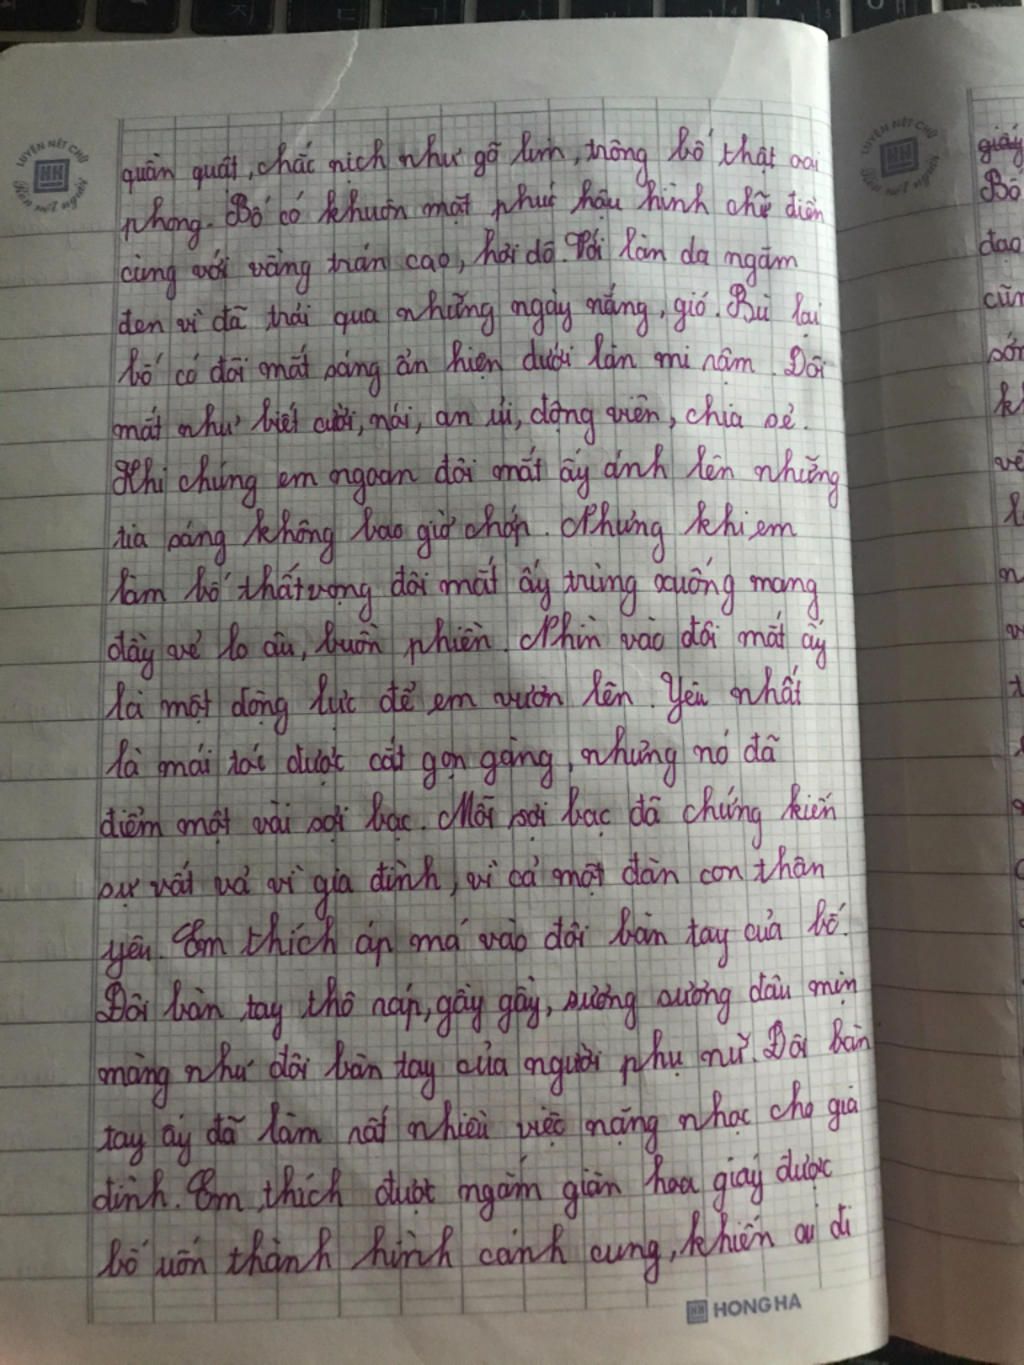 LUYỆN NÉT CHỮ
Rèn nết người
quần quật, chắc nịch như gỗ lim, trông bố thật oai
phong. Bố có khuôn mặt phúc hậu hình chữ điền
cùng với vầng trán cao, hói dô. Với làn da ngăm
đen vì đã trải qua những ngày nắng, gió. Bù lại
bố có đôi mắt sáng ẩn hiện dưới làn mi rậm. Đôi
mắt như biết cười, nói, an ủi, động viên, chia sẻ.
Khi chúng em ngoan đôi mắt ấy ánh lên những
tia sáng không bao giờ chớp. Nhưng khi em
làm bố thất vọng đôi mắt ấy trùng xuống mang
đầy vẻ lo âu, buồn phiền. Nhìn vào đôi mắt ấy
là một động lực để em vươn lên. Yêu nhất
là mái tóc được cắt gọn gàng, nhưng nó đã
điểm một vài sợi bạc. Mỗi sợi bạc đã chứng kiến
sự vất vả vì gia đình, vì cả một đàn con thân
yêu. Em thích áp má vào đôi bàn tay của bố.
Đôi bàn tay thô ráp, gầy gầy, xương xương đâu mịn
màng như đôi bàn tay của người phụ nữ. Đôi bàn
tay ấy đã làm rất nhiều việc nặng nhọc cho gia
đình. Em thích được ngắm giàn hoa giấy được
bố uốn thành hình cánh cung, khiến ai đi
HONG HA
LUYỆN NÉT CHỮ
Rèn nết người
giấy
Bố